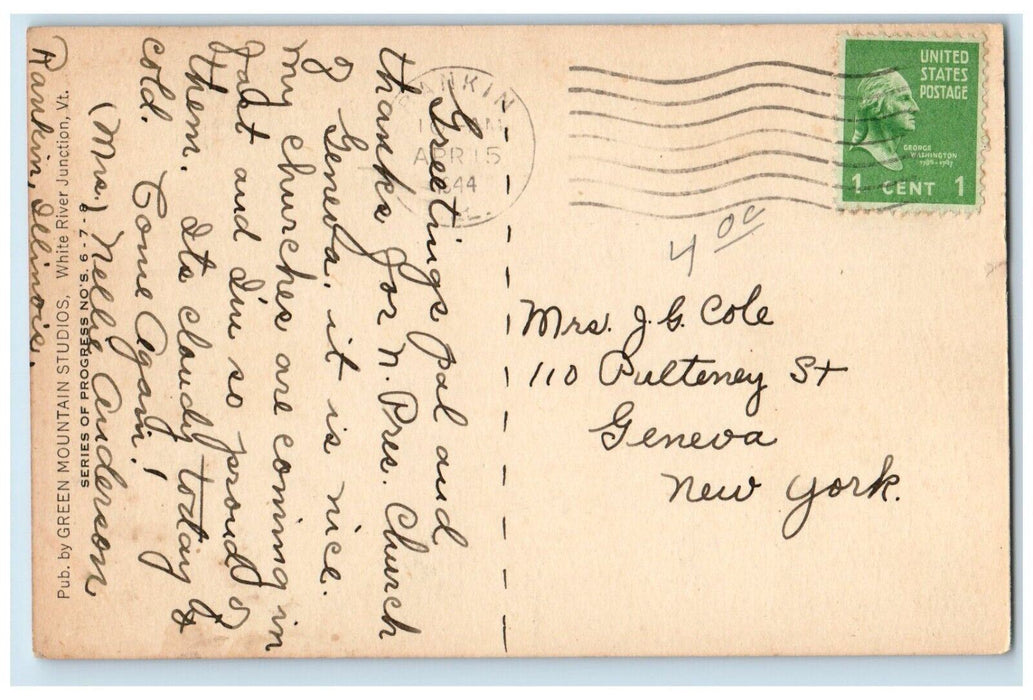 Greetings pal and
thanks for N. Pres. Church
of Geneva. it is nice.
My churches are coming in
fast and I'm so proud of
them. Its cloudy today &
cold. Come Again!
(Mrs.) Nelle Anderson
Rankin, Illinois.
Pub. by GREEN MOUNTAIN STUDIOS, White River Junction, Vt.
SERIES OF PROGRESS NO'S. 6-7-8
RANKIN
APR 15
1944
ILL.
UNITED
STATES
POSTAGE
GEORGE
WASHINGTON
1789-1797
1 CENT 1
4 00
Mrs. J. G. Cole
110 Pulteney St
Geneva
New York.